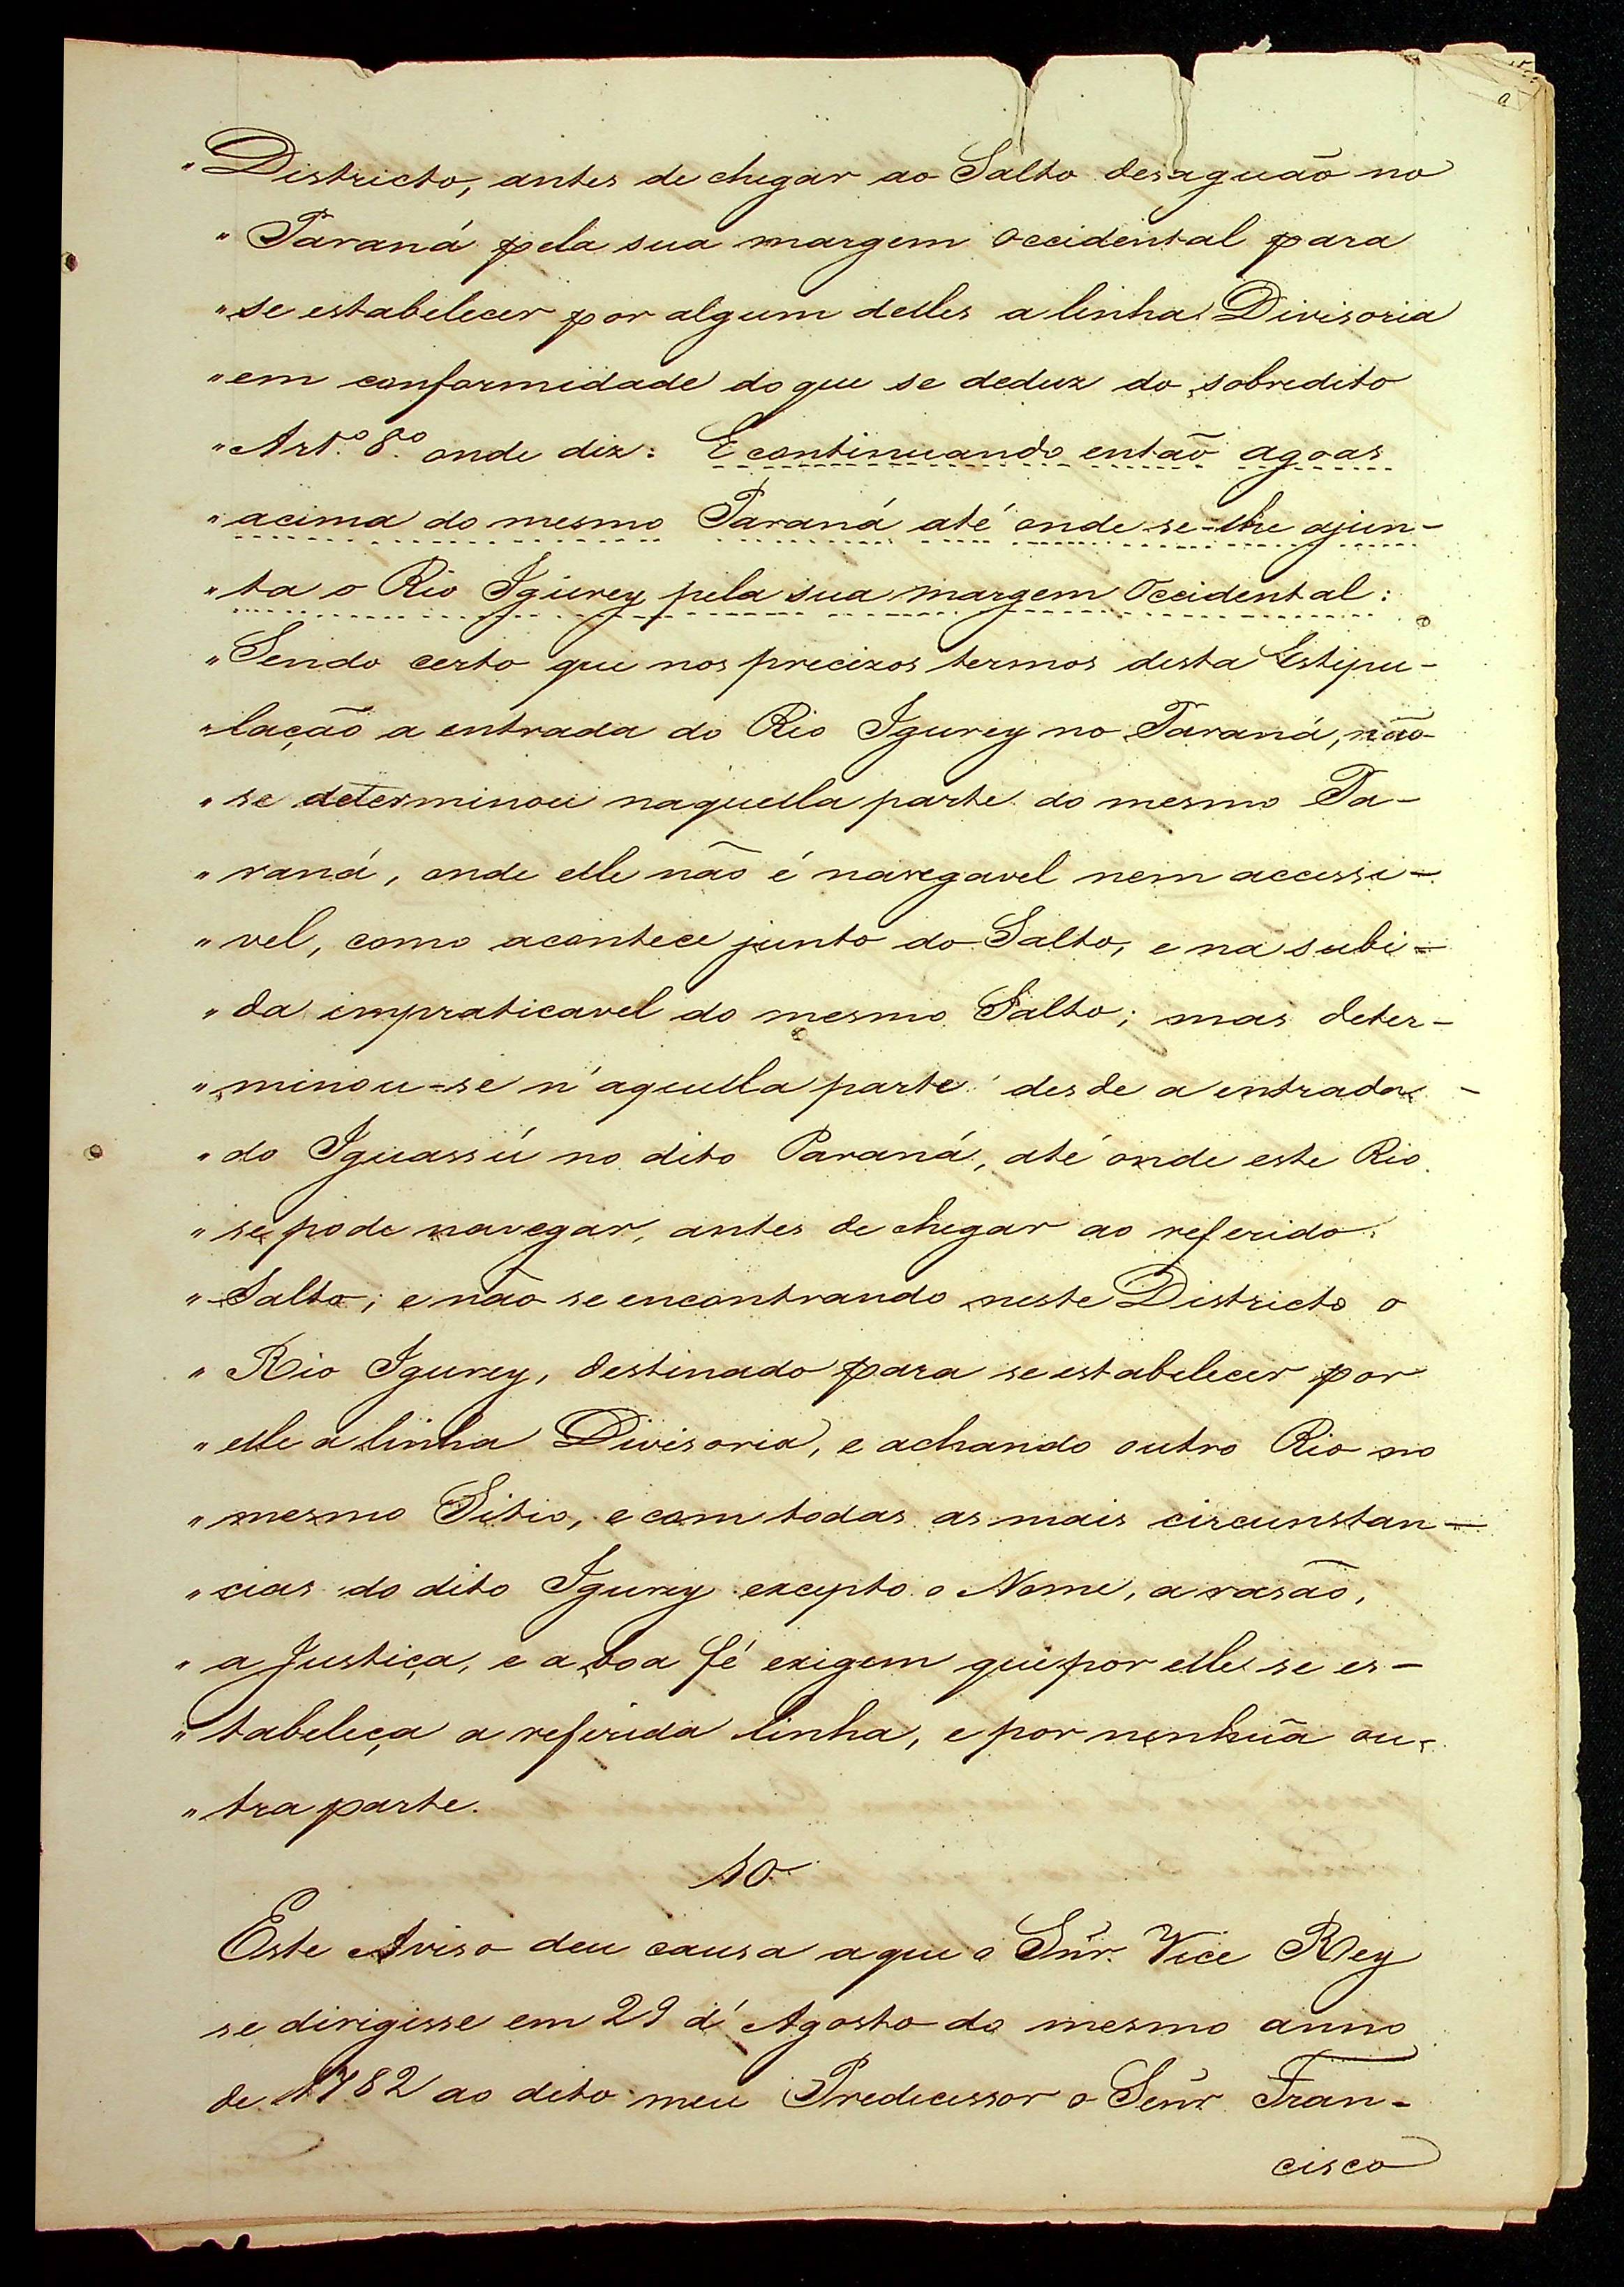 "Districto, antes de chegar ao Salto desaguão no
"Paraná pela sua margem Occidental para
"se estabelecer por algum delles a linha Divisoria
"em conformidade do que se deduz do sobredito
"Artº. 8º. onde diz: E continuando então agoas
"acima do mesmo Paraná até onde se-lhe ajun-
"ta o Rio Igurey pela sua margem Occidental:
"Sendo certo que nos precizos termos desta Estipu-
"lação a entrada do Rio Igurey no Paraná, não
"se determinou naquella parte do mesmo Pa-
"raná, onde elle não é navegavel nem accessi-
"vel, como acontece junto do Salto, e na subi-
"da impraticavel do mesmo Salto; mas deter-
"minou-se n'aquella parte desde a entrada
"do Iguassú no dito Paraná, até onde este Rio
"se pode navegar, antes de chegar ao referido
"Salto; e não se encontrando neste Districto o
"Rio Igurey, destinado para se estabelecer por
"elle a linha Divisoria, e achando outro Rio no
"mesmo Sitio, e com todas as mais circunstan-
"cias do dito Igurey excepto o Nome, a rasão,
"a Justiça, e a boa fé exigem que por elle se es-
"tabeleça a referida linha, e por nenhũa ou-
"tra parte.
10.
Este Aviso deu causa a que o Snr. Vice Rey
se dirigisse em 29 d'Agosto do mesmo anno
de 1782 ao dito meu Predecessor o Senr Fran-
cisco